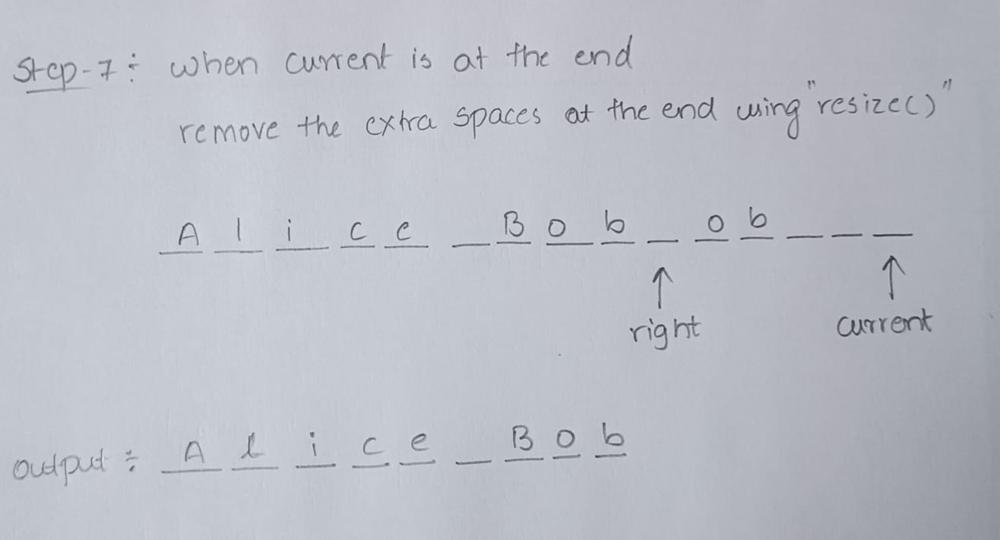 Step-7÷ when current is at the end
remove the extra spaces at the end using "resize()"
A l i c e _ B o b _ o b _ _ _
↑ ↑
right current
output÷ A l i c e _ B o b